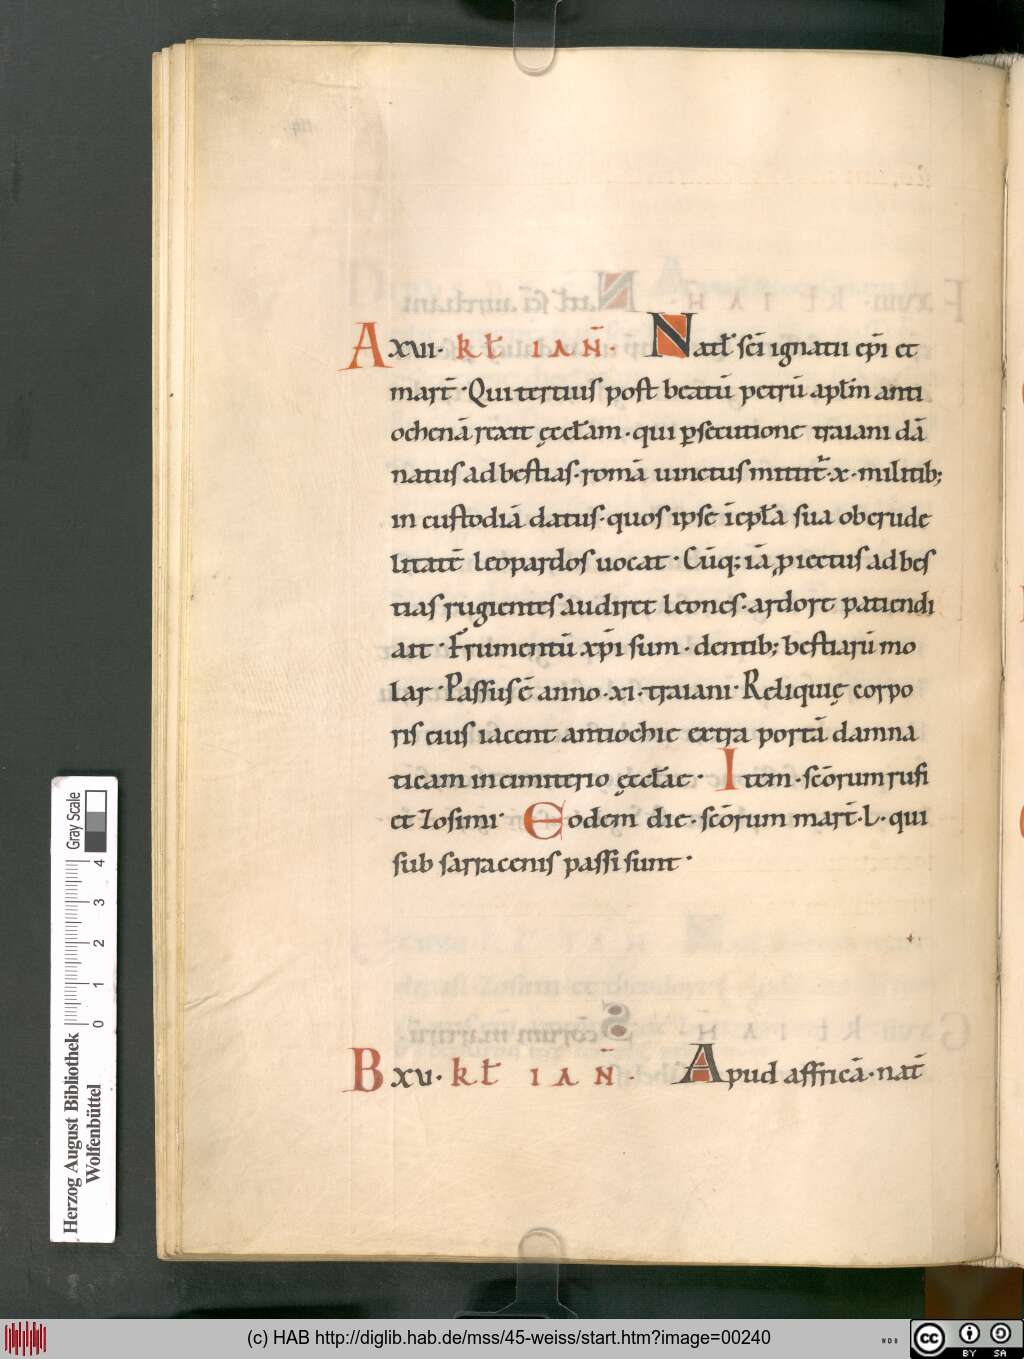 A xvii· kł ian̄· Natł sc̄i ignatii ep̄i et
mart̄· Qui tertius post beatū petrū apłm anti
ochenā rexit ęccłam· qui ꝑsecutione traiani dā
natus ad bestias· romā uinctus mittit᷑· x· militib;
in custodiā datus· quos ipse ī epła sua ob crude
litatē leopardos uocat· Cūq; iā ꝓiectus ad bes
tias rugientes audiret leones· ardore patiendi
ait· Frumentū xp̄i sum· dentib; bestiarū mo
lar· Passus ē anno· xi· traiani· Reliquię corpo
ris eius iacent antiochię extra portā damna
ticam in cimiterio ęccłae· Item· sc̄orum rufi
et Zosimi· Eodem die· sc̄orum mart̄· L· qui
sub sarracenis passi sunt·
B xv· kł ian̄· Apud affricā· nat̄
Herzog August Bibliothek
Wolfenbüttel
0 1 2 3 4
Gray Scale
(c) HAB http://diglib.hab.de/mss/45-weiss/start.htm?image=00240
cc BY SA